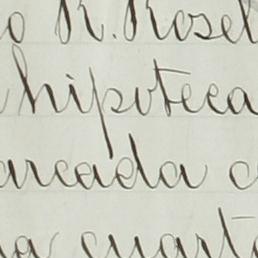 o R. Rosel
hipoteca
arcada c
na cuart